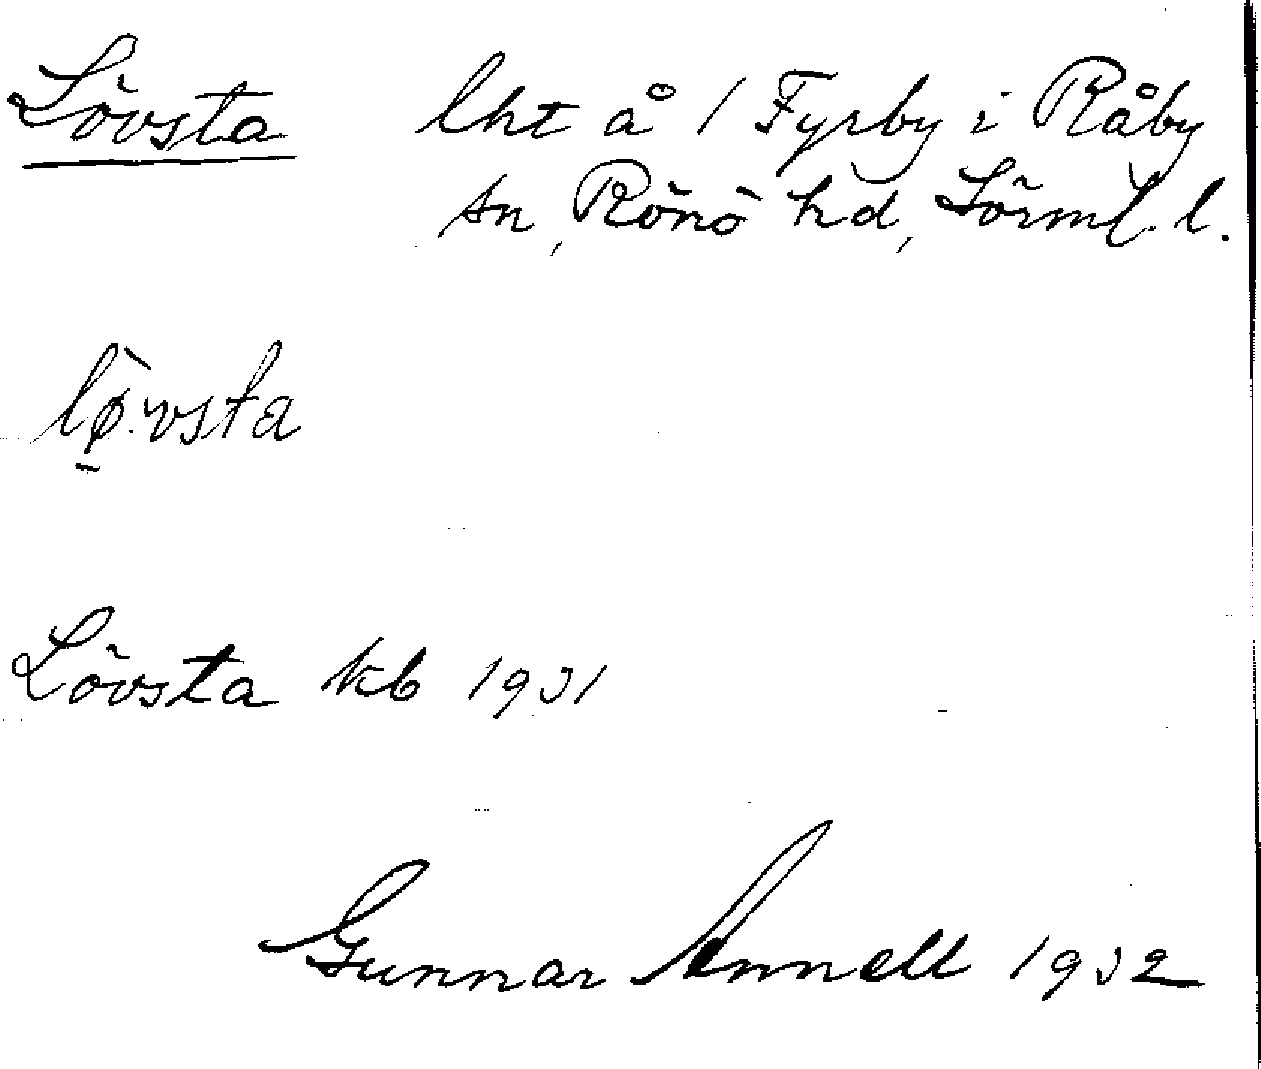 Lövsta lht å 1 Fyrby i Råby
sn, Rönö hd, Sörml. l.
lø̀.vsta
Lövsta kb 1931
Gunnar Annell 1932